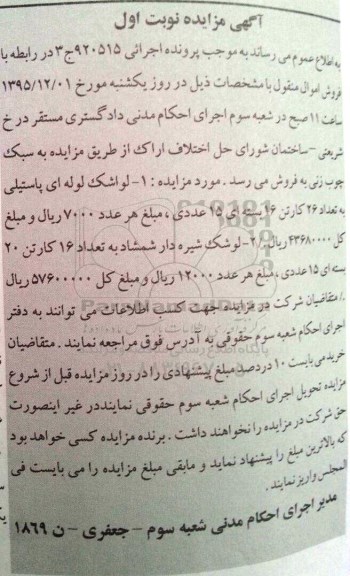 آگهی مزایده نوبت اول
به اطلاع عموم می رساند به موجب پرونده اجرائی ۹۲۰۵۱۵ج۳ در رابطه با
فروش اموال منقول با مشخصات ذیل در روز یکشنبه مورخ ۱۳۹۵/۱۲/۰۱
ساعت ۱۱ صبح در شعبه سوم اجرای احکام مدنی دادگستری مستقر در خ
شریعتی - ساختمان شورای حل اختلاف اراک از طریق مزایده به سبک
چوب زنی به فروش می رسد . مورد مزایده : ۱- لواشک لوله ای پاستیلی
به تعداد ۲۶ کارتن ۱۶ بسته ای ۱۵ عددی ، مبلغ هر عدد ۷۰۰۰ ریال و مبلغ
کل ۴۳۶۸۰۰۰۰ ریال ./ ۲- لوشک شیره دار شمشاد به تعداد ۱۶ کارتن ۲۰
بسته ای ۱۵ عددی ، مبلغ هر عدد ۱۲۰۰۰ ریال و مبلغ کل ۵۷۶۰۰۰۰۰ ریال
./ متقاضیان شرکت در مزایده جهت کسب اطلاعات می توانند به دفتر
اجرای احکام شعبه سوم حقوقی به آدرس فوق مراجعه نمایند . متقاضیان
خرید می بایست ۱۰ درصد مبلغ پیشنهادی را در روز مزایده قبل از شروع
مزایده تحویل اجرای احکام شعبه سوم حقوقی نمایند در غیر اینصورت
حق شرکت در مزایده را نخواهند داشت . برنده مزایده کسی خواهد بود
که بالاترین مبلغ را پیشنهاد نماید و مابقی مبلغ مزایده را می بایست فی
المجلس واریز نمایند .
مدیر اجرای احکام مدنی شعبه سوم - جعفری - ن ۱۸۶۹